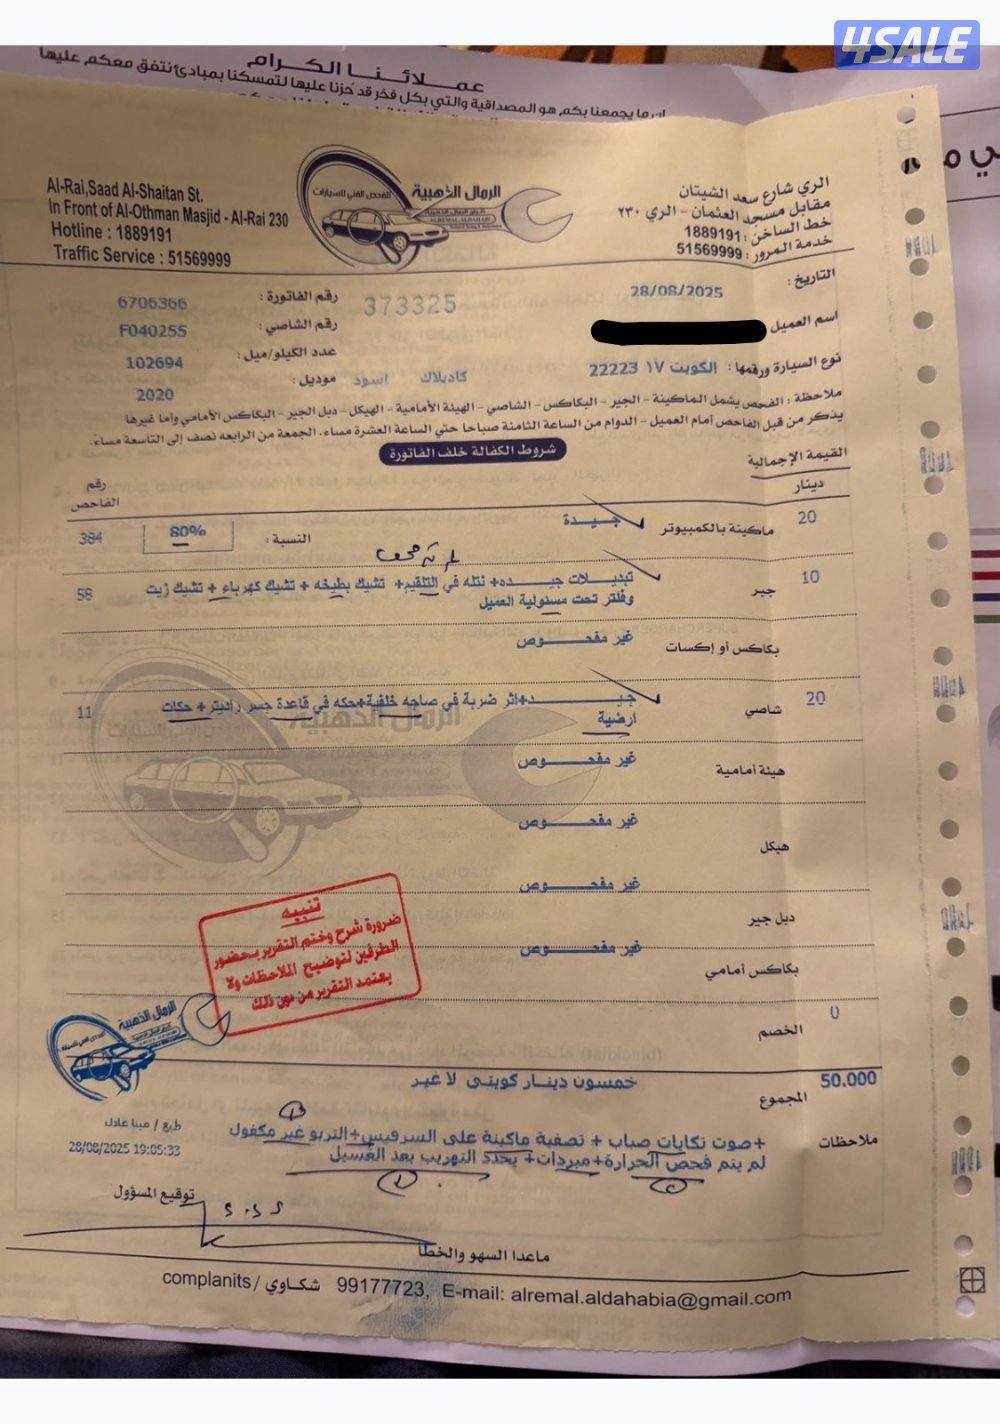 4SALE
عملائنا الكرام
إن ما يجمعنا بكم هو المصداقية والتي بكل فخر قد حُزنا عليها لتمسكنا بمبادئ نتفق معكم عليها
Al-Rai,Saad Al-Shaitan St.
In Front of Al-Othman Masjid - Al-Rai 230
Hotline : 1889191
Traffic Service : 51569999
الرمال الذهبية
للفحص الفني للسيارات
الري شارع سعد الشيتان
مقابل مسجد العثمان - الري ٢٣٠
خط الساخن : 1889191
خدمة المرور : 51569999
التاريخ : 28/08/2025
373325
رقم الفاتورة : 6706366
اسم العميل
رقم الشاصي : F040255
نوع السيارة ورقمها : الكويت ١٧ 22223
كاديلاك اسود
عدد الكيلو/ميل : 102694
موديل : 2020
ملاحظة : الفحص يشمل الماكينة - الجير - البكاكس - الشاصي - الهيئة الأمامية - الهيكل - دبل الجير - البكاكس الأمامي وأما غيرها
يذكر من قبل الفاحص أمام العميل - الدوام من الساعة الثامنة صباحا حتي الساعة العشرة مساء. الجمعة من الرابعه نصف إلى التاسعة مساء.
شروط الكفالة خلف الفاتورة
القيمة الإجمالية
دينار
رقم الفاحص
20 ماكينة بالكمبيوتر جيـــدة النسبة : 80% 384
10 جير تبديـــلات جيـــده+ نتله في التلقيم+ تشيك بطيخه + تشيك كهرباء + تشيك زيت 58
وفلتر تحت مسئولية العميل
بكاكس أو إكسات غير مفحــــوص
20 شاصي جيـــــد+اثر ضربة في صاجه خلفية+حكه في قاعدة جسر راديتر + حكات 11
ارضية
هيئة أمامية غير مفحــــوص
هيكل غير مفحــــوص
دبل جير غير مفحــــوص
بكاكس أمامي غير مفحــــوص
تنبيه
ضرورة شرح وختم التقرير بحضور
الطرفين لتوضيح الملاحظات ولا
يعتمد التقرير من دون ذلك
الرمال الذهبية
الخصم 0
المجموع 50.000 خمسون دينار كويتى لا غير
ملاحظات +صوت تكايات صباب + تصفية ماكينة على السرفيس+التربو غير مكفول
لم يتم فحص الحرارة+مبردات+ يحدد التهريب بعد الغسيل
طبع / مينا عادل
28/08/2025 19:05:33
توقيع المسؤول
ماعدا السهو والخطأ
complanits / شكاوي 99177723, E-mail: alremal.aldahabia@gmail.com